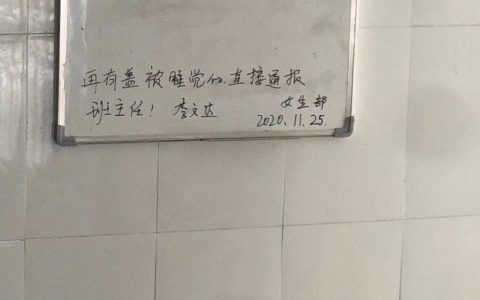 再有盖被睡觉的.直接通报
班主任! 李文达 女生部
2020.11.25.